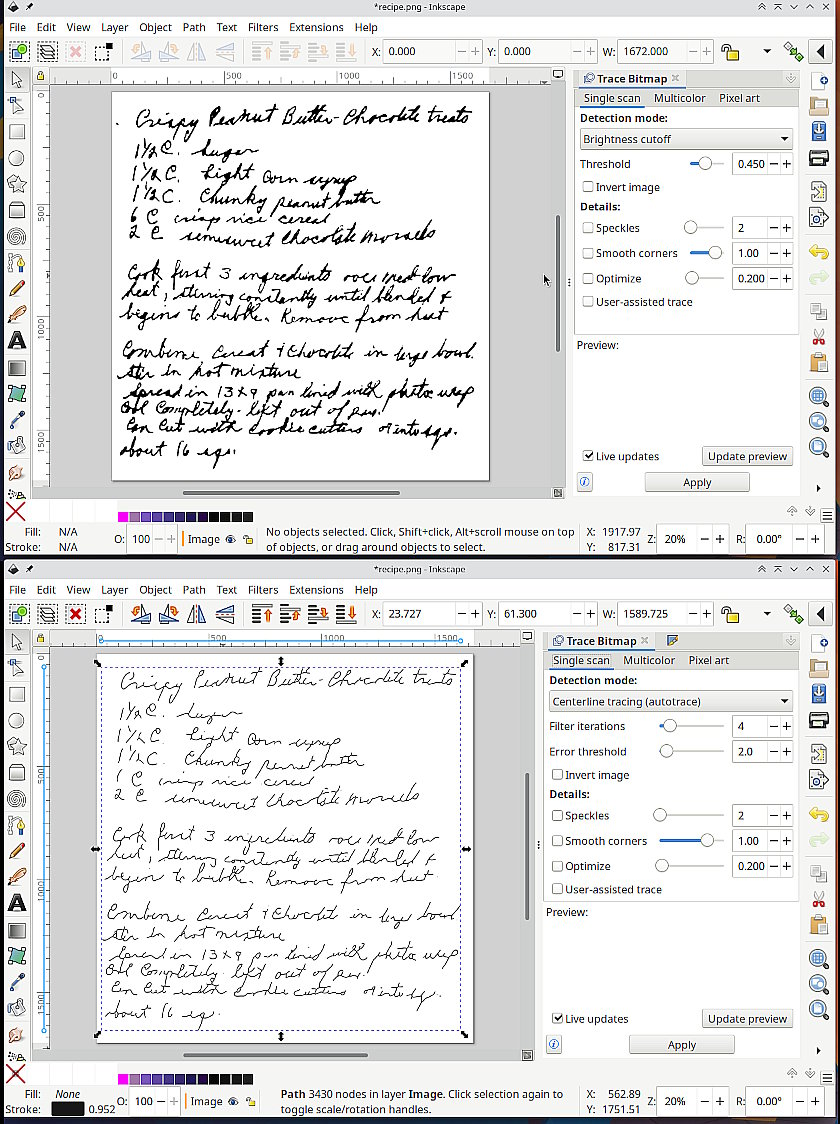 *recipe.png - Inkscape
File Edit View Layer Object Path Text Filters Extensions Help
X: 0.000 Y: 0.000 W: 1672.000
0 500 1000 1500
0 500 1000 1500
Crispy Peanut Butter-Chocolate treats
1½ C. Sugar
1½ C. Light Corn syrup
1½ C. Chunky peanut butter
6 C crisp rice cereal
2 C semisweet Chocolate morsels
Cook first 3 ingredients over med low
heat, stirring constantly until blended &
begins to bubble. Remove from heat
Combine Cereal & Chocolate in large bowl.
stir in hot mixture
Spread in 13x9 pan lined with plastic wrap
Cool Completely. lift out of pan!
Can Cut with cookie cutters or into sqs.
about 16 sqs.
Trace Bitmap
Single scan Multicolor Pixel art
Detection mode:
Brightness cutoff
Threshold 0.450
Invert image
Details:
Speckles 2
Smooth corners 1.00
Optimize 0.200
User-assisted trace
Preview:
Live updates Update preview
Apply
Fill: N/A
Stroke: N/A
O: 100 Image
No objects selected. Click, Shift+click, Alt+scroll mouse on top
of objects, or drag around objects to select.
X: 1917.97
Y: 817.31
Z: 20% R: 0.00°
*recipe.png - Inkscape
File Edit View Layer Object Path Text Filters Extensions Help
X: 23.727 Y: 61.300 W: 1589.725
0 500 1000 1500
0 500 1000 1500
Crispy Peanut Butter-Chocolate treats
1½ C. Sugar
1½ C. Light Corn syrup
1½ C. Chunky peanut butter
C crisp rice cereal
2 C semisweet Chocolate morsels
Cook first 3 ingredients over med low
heat, stirring constantly until blended &
begins to bubble. Remove from heat
Combine Cereal & Chocolate in large bowl
stir in hot mixture
Spread in 13x9 pan lined with plastic wrap
Cool Completely lift out of pan!
Can Cut with cookie cutters or into sq.
about 16 sq.
Trace Bitmap
Single scan Multicolor Pixel art
Detection mode:
Centerline tracing (autotrace)
Filter iterations 4
Error threshold 2.0
Invert image
Details:
Speckles 2
Smooth corners 1.00
Optimize 0.200
User-assisted trace
Preview:
Live updates Update preview
Apply
Fill: None
Stroke: 0.952
O: 100 Image
Path 3430 nodes in layer Image. Click selection again to
toggle scale/rotation handles.
X: 562.89
Y: 1751.51
Z: 20% R: 0.00°